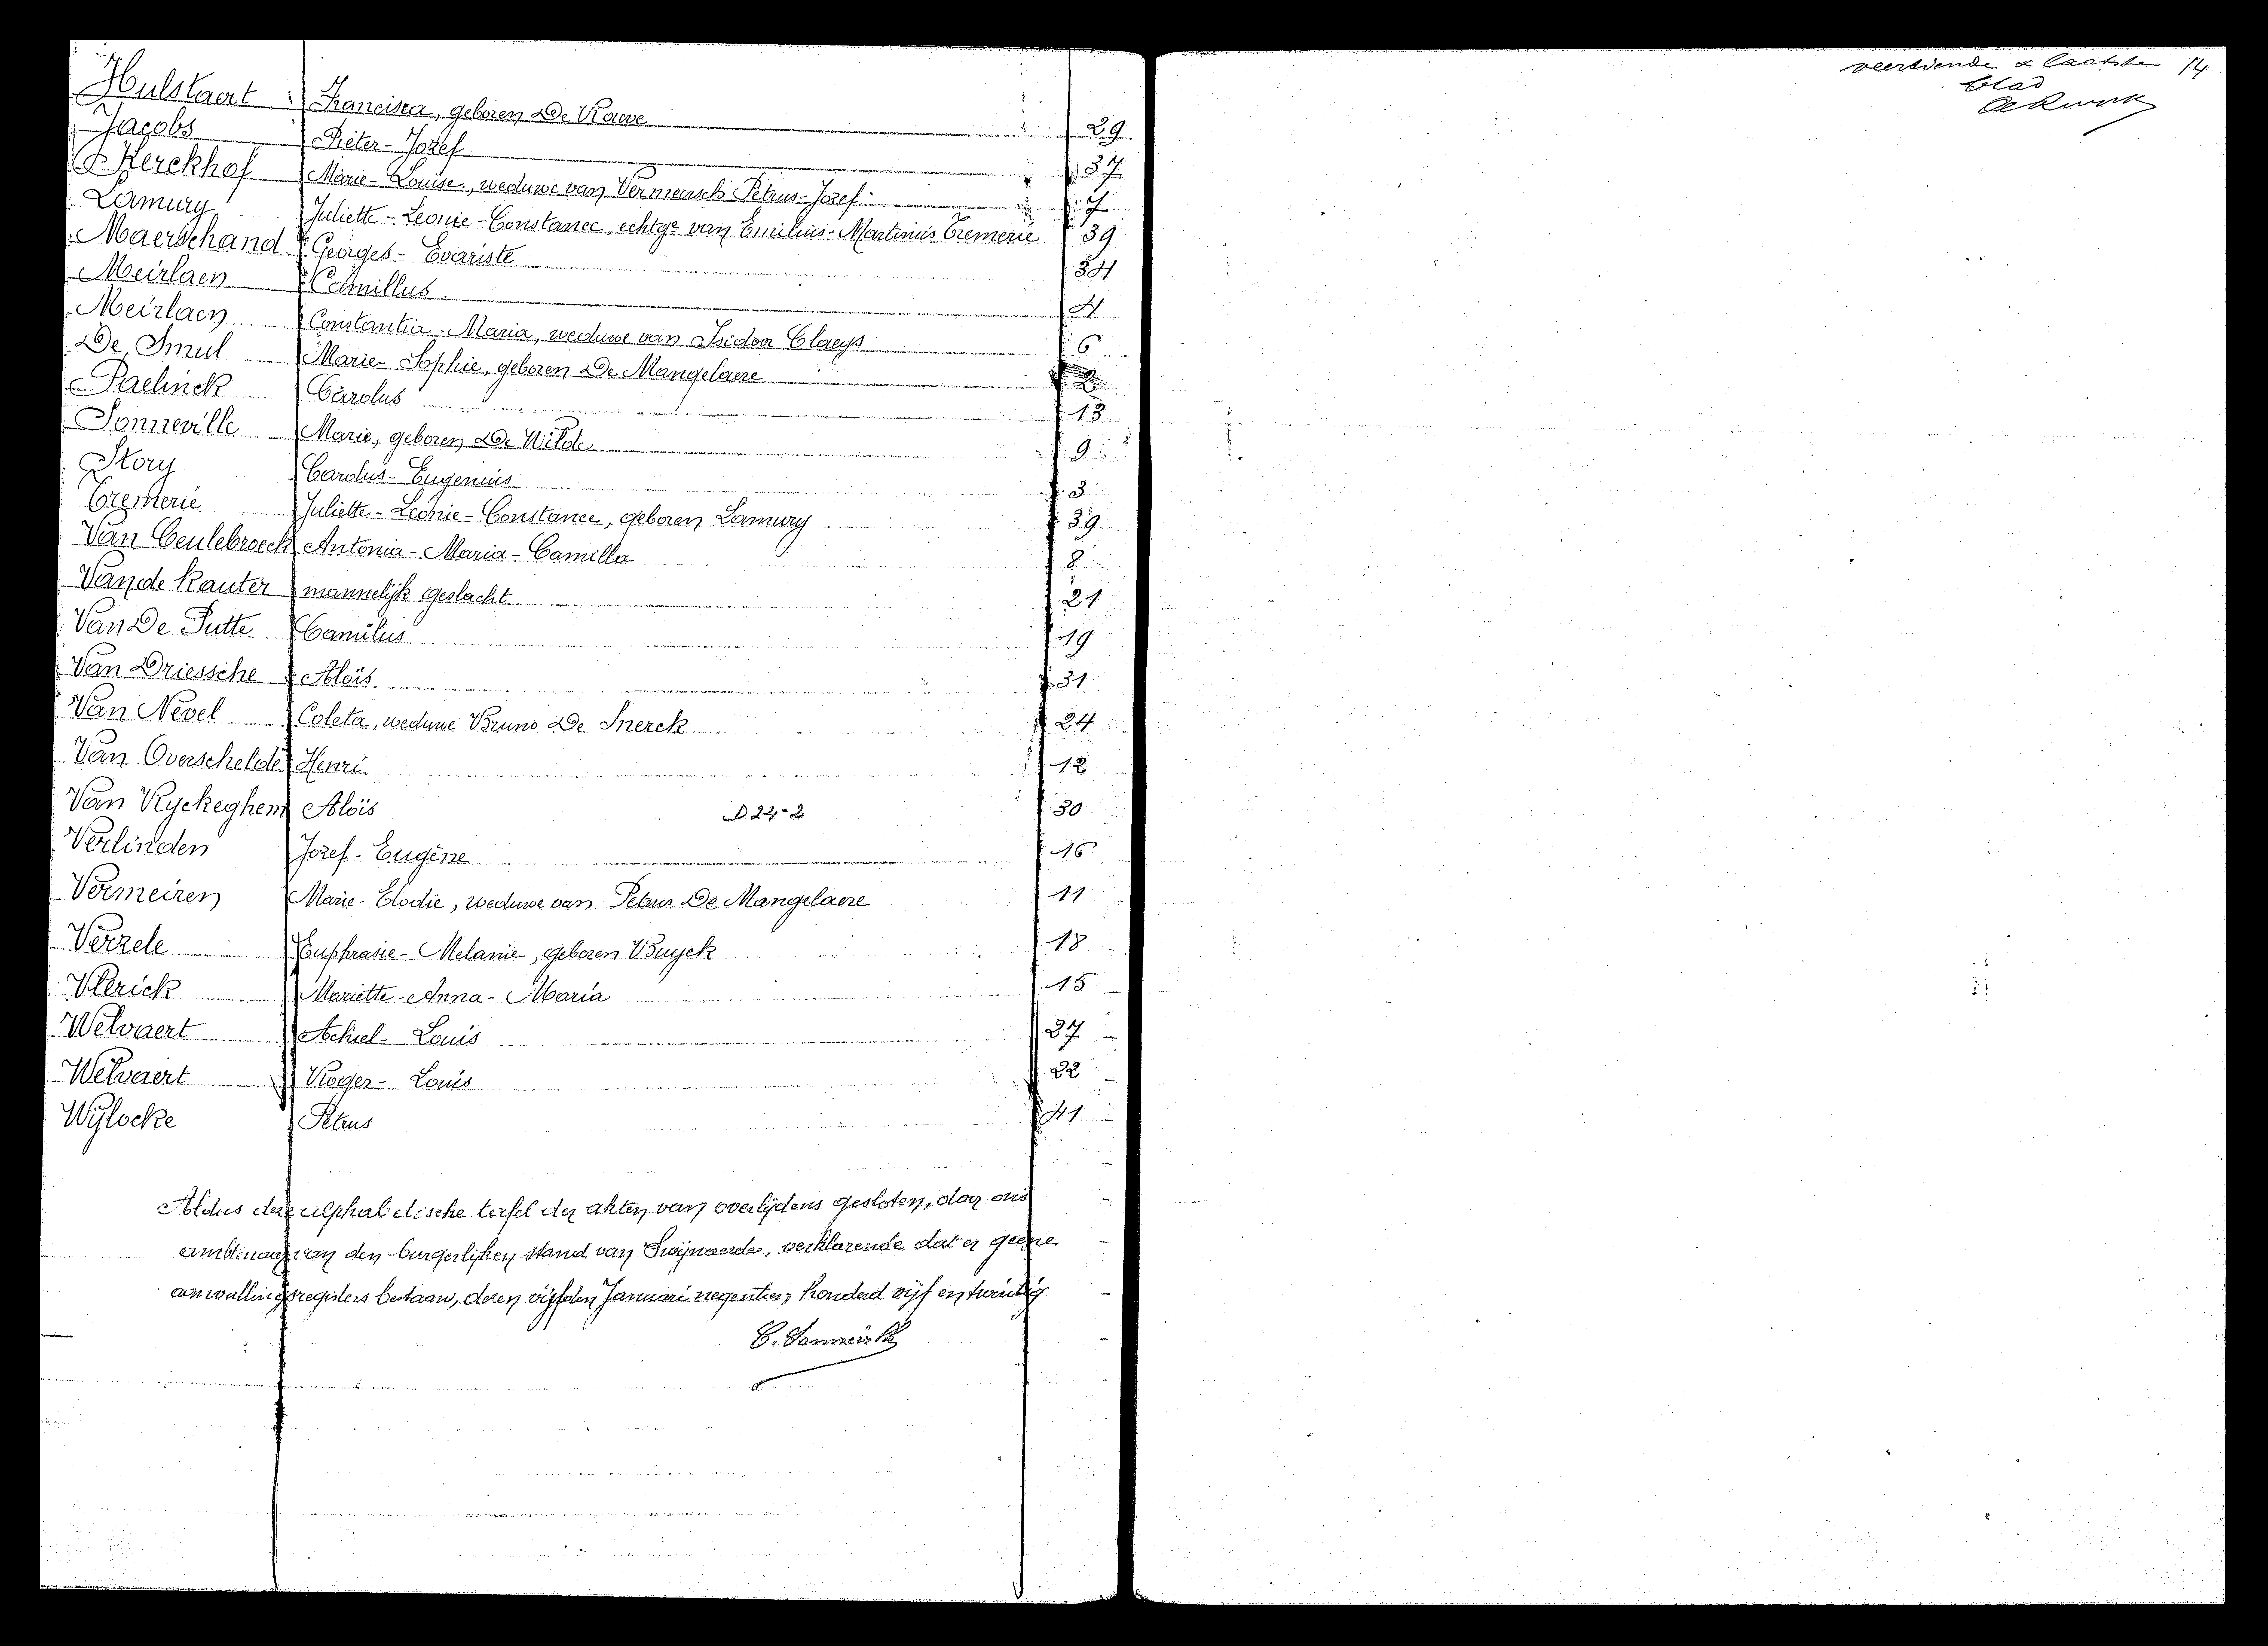 Hulstaert Francisca, geboren De Rauve 29
Jacobs Pieter-Jozef 37
Kerckhof Marie-Louise, weduwe van Vermeersch Petrus-Jozef 7
Lamury Juliette-Leonie-Constance, echtge van Emilius-Martinus Tremerie 39
Maerschand Georges-Evariste 34
Meirlaen Camillus 4
Meirlaen Constantia-Maria, weduwe van Isidoor Claeys 6
De Smul Marie-Sophie, geboren De Mangelaere 2
Paelinck Carolus 13
Sonneville Marie, geboren De Wilde 9
Story Carolus-Eugenius 3
Tremerie Juliette-Leonie-Constance, geboren Lamury 39
Van Ceulebroeck Antonia-Maria-Camilla 8
Van de Kauter mannelijk geslacht 21
Van De Putte Camilus 19
Van Driessche Aloïs 31
Van Nevel Coleta, weduwe Bruno De Snerck 24
Van Overschelde Henri 12
Van Ryckeghem Aloïs D 22-2 30
Verlinden Jozef-Eugène 16
Vermeiren Marie-Elodie, weduwe van Petrus De Mangelaere 11
Verzele Euphrasie-Melanie, geboren Buyck 18
Vlerick Mariette-Anna-Maria 15
Welvaert Achiel-Louis 27
Welvaert Roger-Louis 22
Wylocke Petrus 41
Aldus deze alphabetische tafel der akten van overlijdens gesloten, door ons
ambtenaar van den burgerlijken stand van Swijnaerde, verklarende dat er geene
aanvullingsregisters bestaan, dezen vijfden Januari negentien honderd vijf en twintig
veertiende & laatste 14
blad